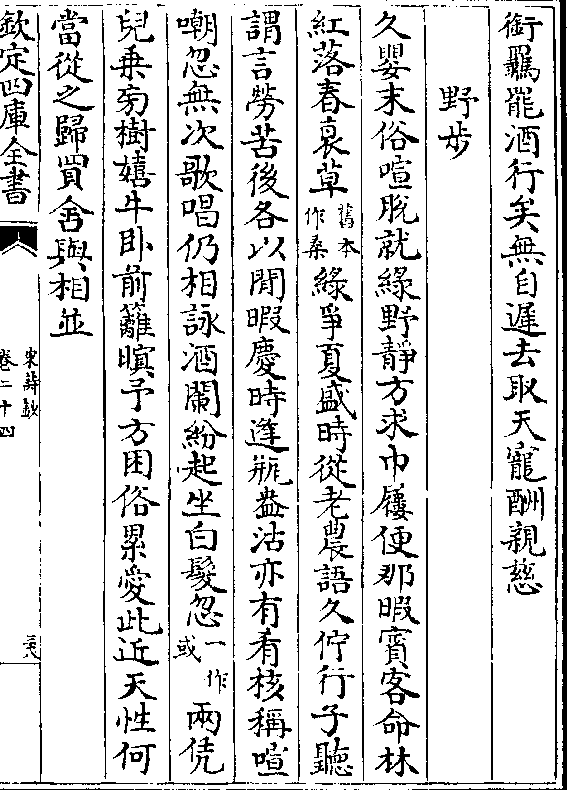 銜羈罷酒行矣無自遲去取天寵酬親慈
野步
久嬰末俗喧脫就綠野靜方求巾屨便那暇賓客命林
紅落春裏草舊本作桑綠爭夏盛時從老農語久佇行子聽
謂言勞苦後各以閒暇慶時逢瓶盎沽亦有肴核稱喧
嘲忽無次歌唱仍相詠酒闌紛起坐白髮忽一作或兩凭
兒乗旁樹嬉牛卧前籬瞑予方困俗累愛此近天性何
當從之歸買舍與相並
欽定四庫全書
宋詩鈔
卷二十四